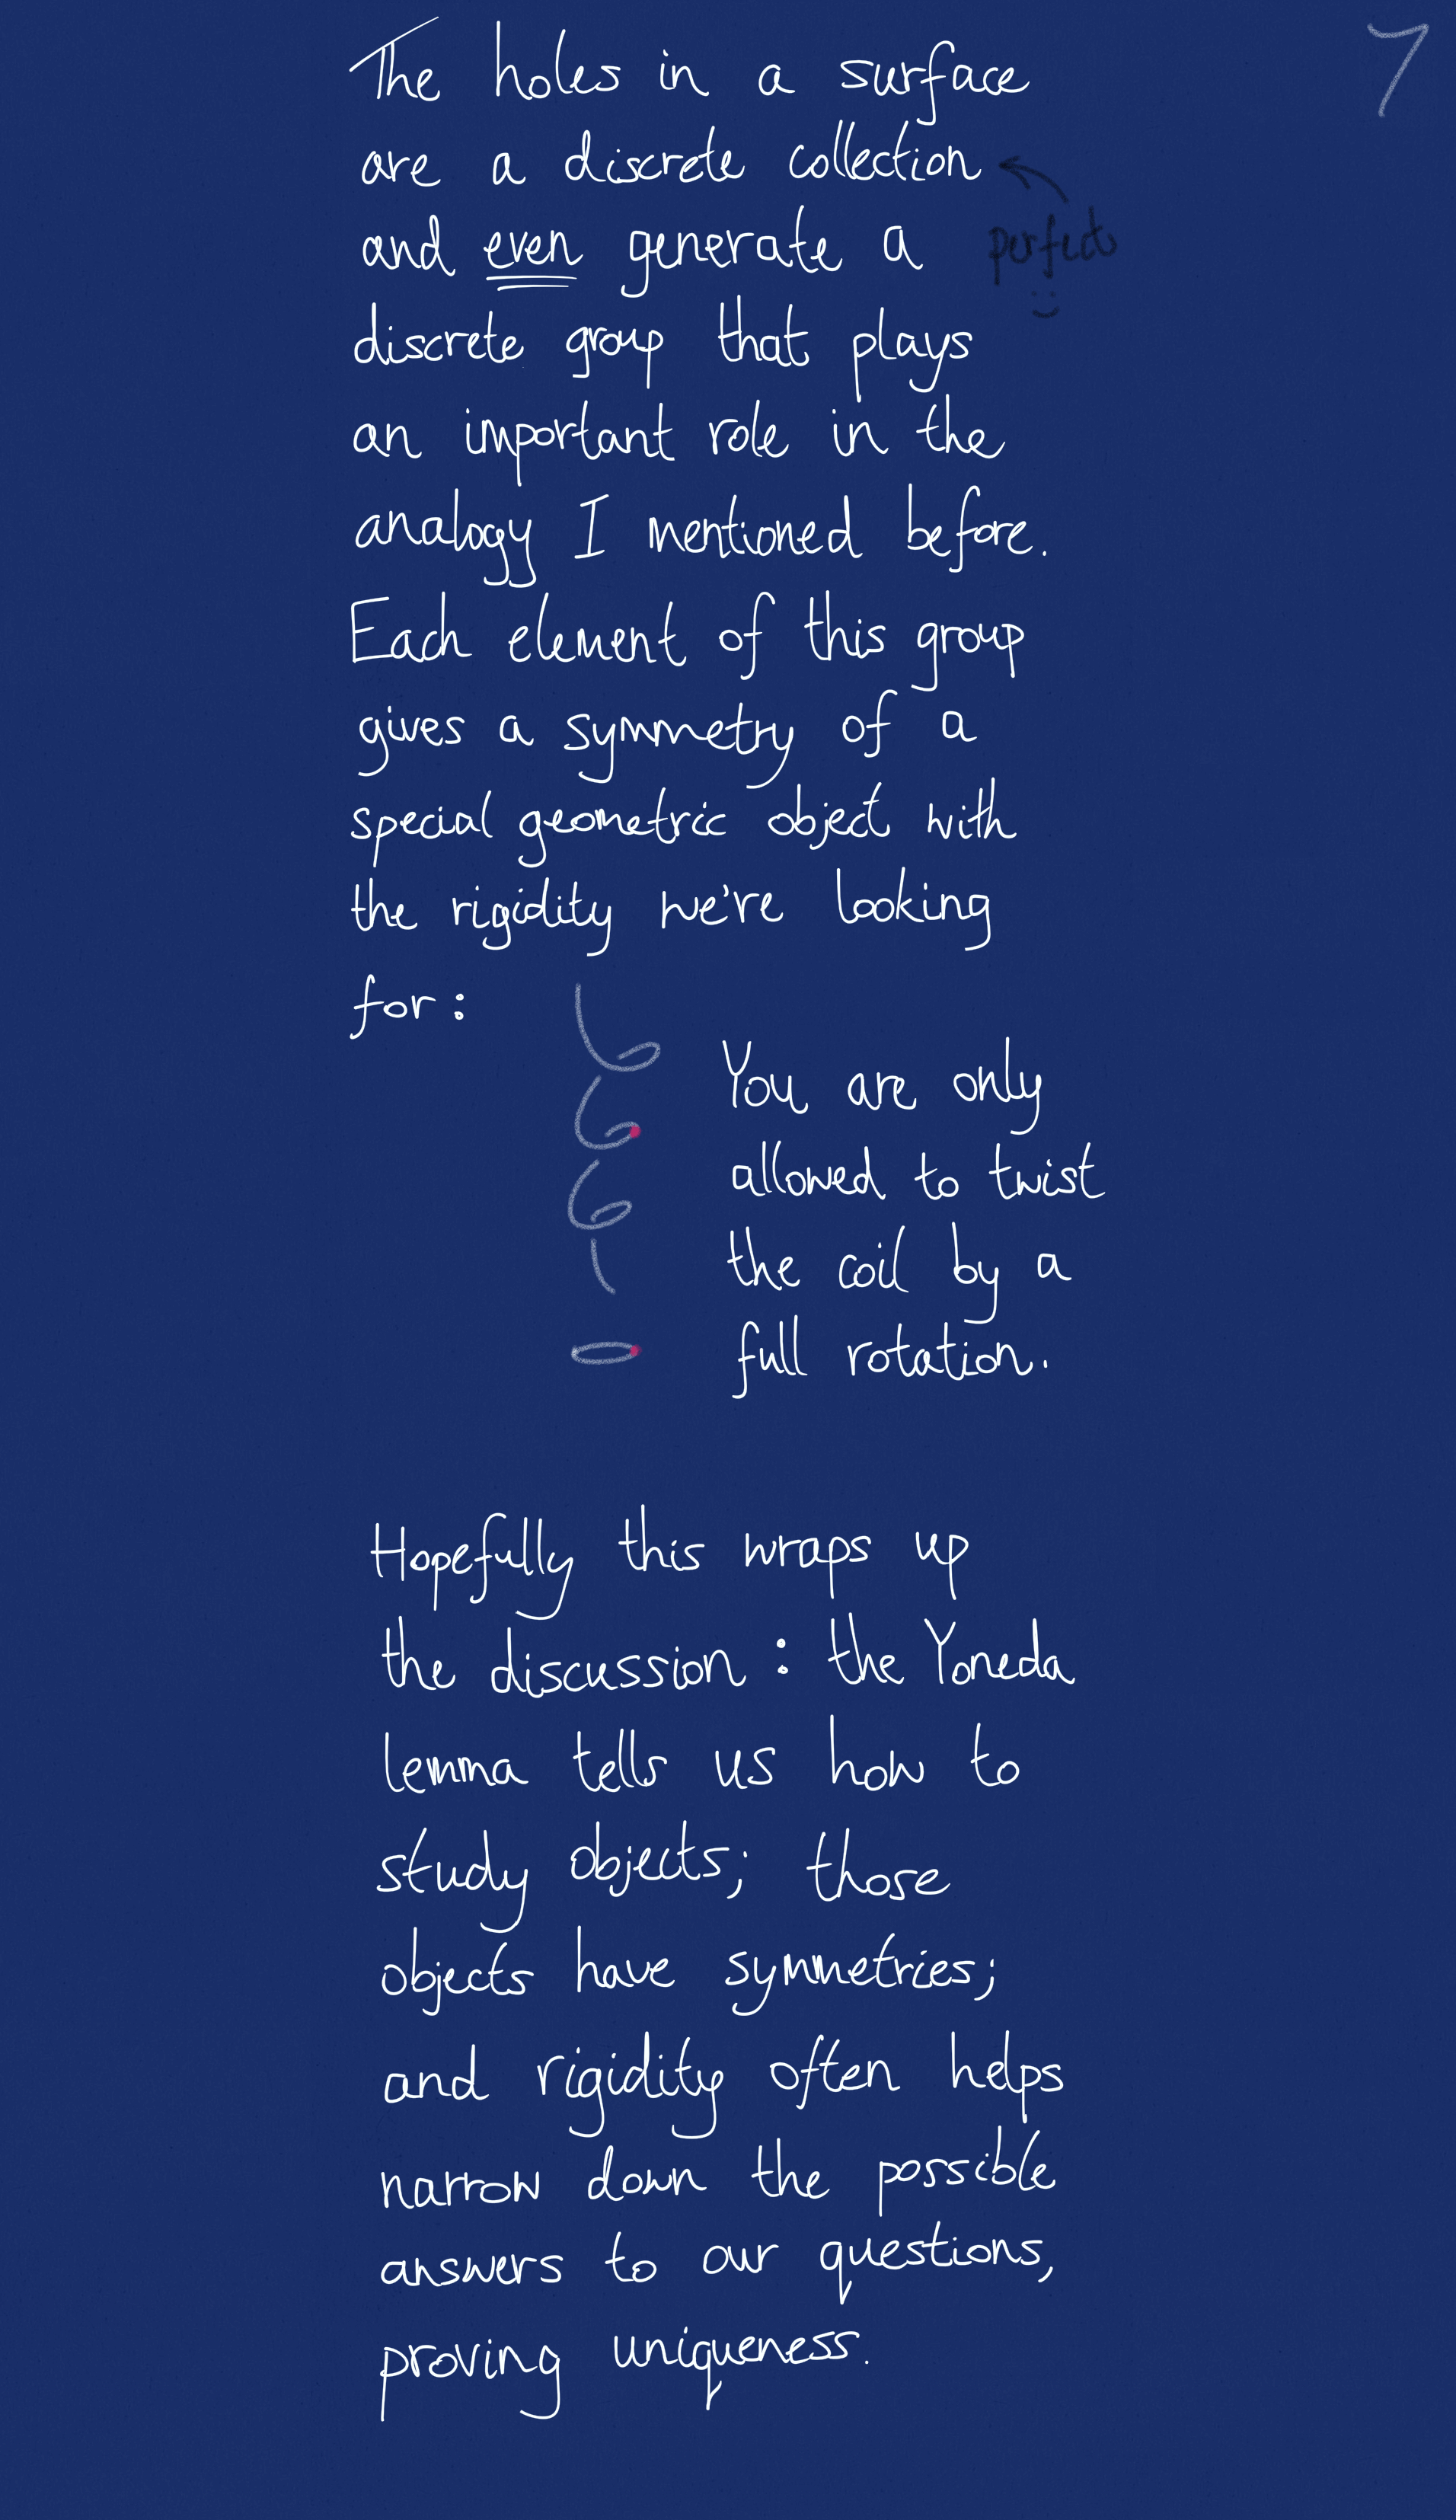 7
The holes in a surface
are a discrete collection
perfect
:)
and even generate a
discrete group that plays
an important role in the
analogy I mentioned before.
Each element of this group
gives a symmetry of a
special geometric object with
the rigidity we're looking
for:
You are only
allowed to twist
the coil by a
full rotation.
Hopefully this wraps up
the discussion: the Yoneda
lemma tells us how to
study objects; those
objects have symmetries;
and rigidity often helps
narrow down the possible
answers to our questions,
proving uniqueness.